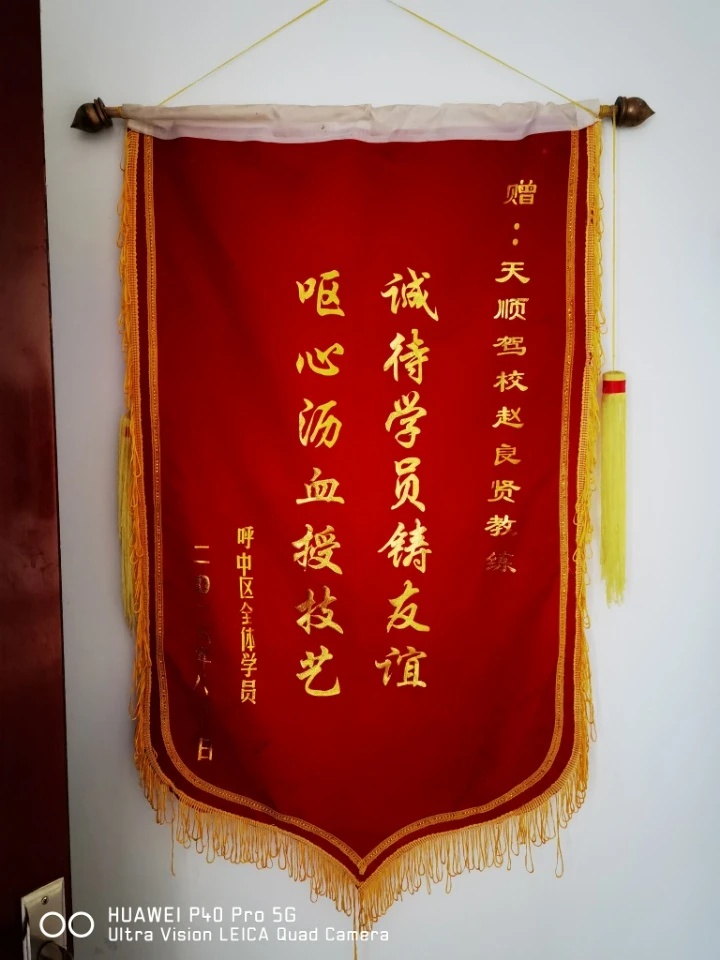 赠：天顺驾校赵良贤教练
诚待学员铸友谊
呕心沥血授技艺
呼中区全体学员
二〇 年八 日
HUAWEI P40 Pro 5G
Ultra Vision LEICA Quad Camera